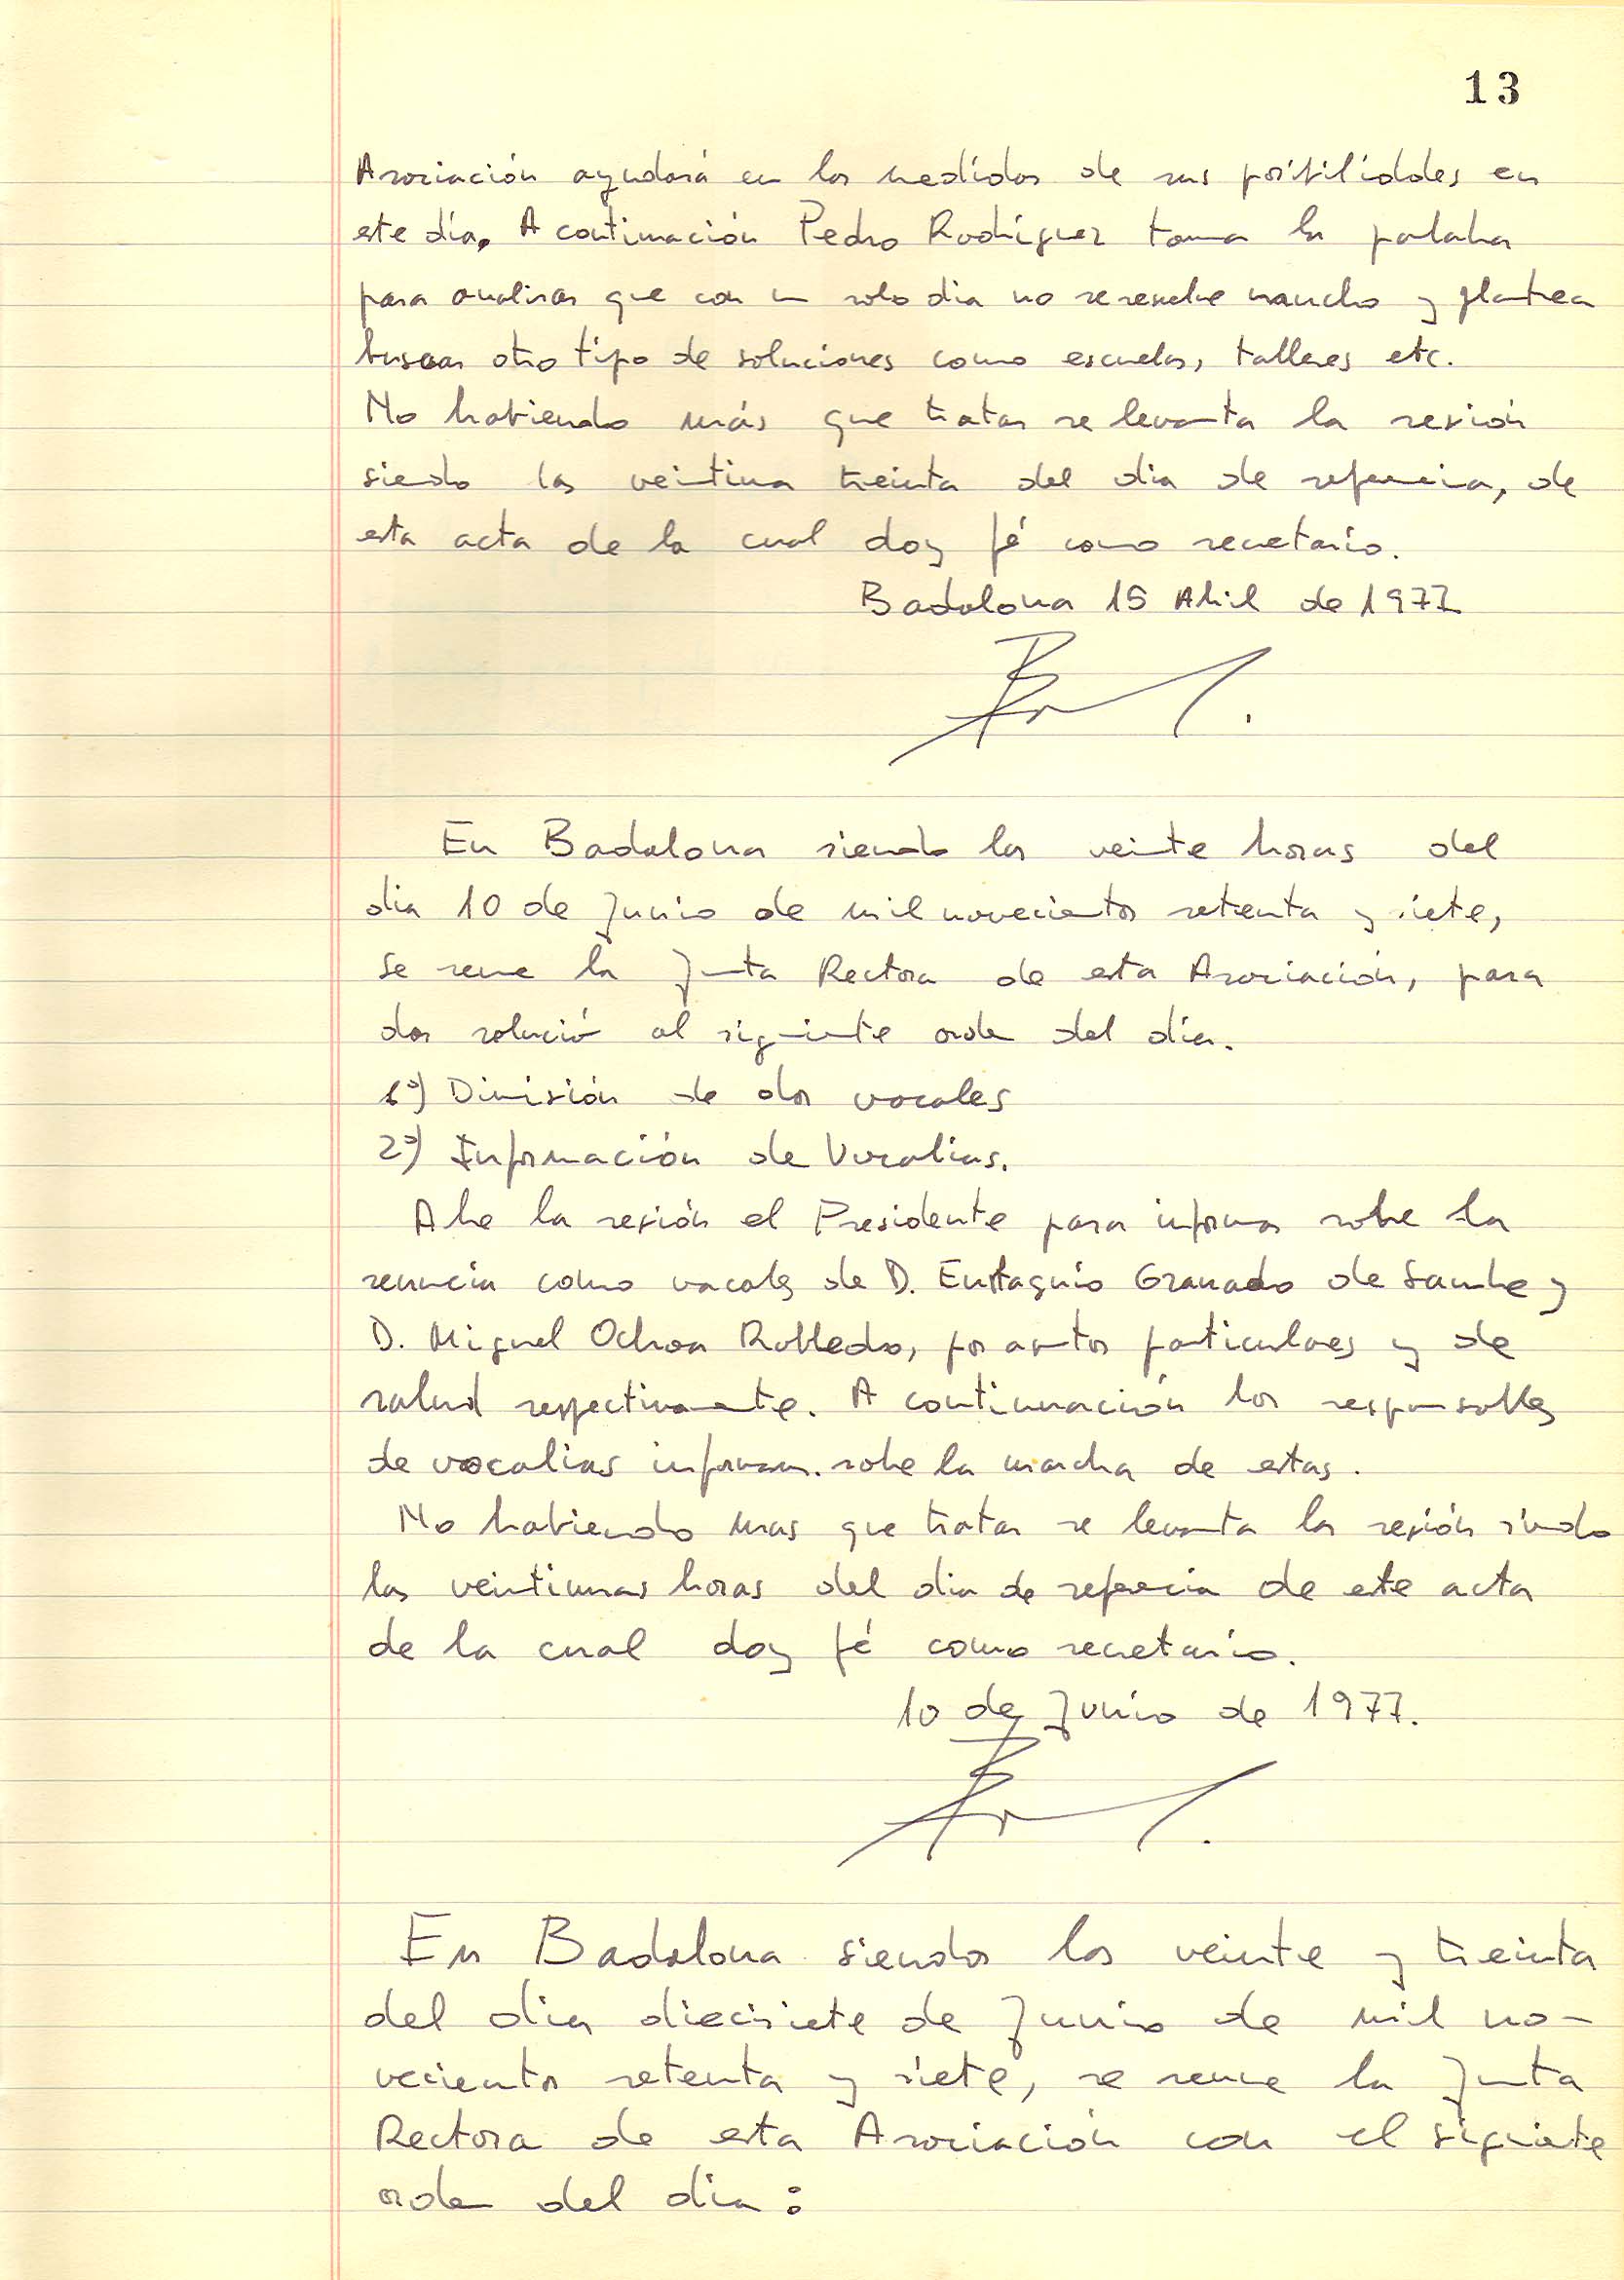 13
Asociación ayudará en las medidas de sus posibilidades en
este día. A continuación Pedro Rodríguez toma la palabra
para analizar que con un solo dia no se resuelve mucho y plantea
buscar otro tipo de soluciones como escuelas, talleres etc.
No habiendo más que tratar se levanta la sesión
siendo las veintiuna treinta del dia de referencia, de
esta acta de la cual doy fé como secretario.
Badalona 15 Abril de 1977
En Badalona siendo las veinte horas del
dia 10 de Junio de mil novecientos setenta y siete,
se reune la Junta Rectora de esta Asociación, para
dar solució al siguiente orden del día.
1º) Dimisión de dos vocales
2º) Información de Vocalias.
Abre la sesión el Presidente para informar sobre la
renuncia como vocales de D. Eustaquio Granado de Sambe y
D. Miguel Ochoa Robledo, por asuntos particulares y de
salud respectivamente. A continuación los responsables
de vocalias informan sobre la marcha de estas.
No habiendo mas que tratar se levanta la sesión siendo
las veintiunas horas del dia de referencia de este acta
de la cual doy fé como secretario.
10 de Junio de 1977.
En Badalona siendo las veinte y treinta
del dia diecisiete de Junio de mil no-
vecientos setenta y siete, se reune la Junta
Rectora de esta Asociación con el siguiente
orden del dia: